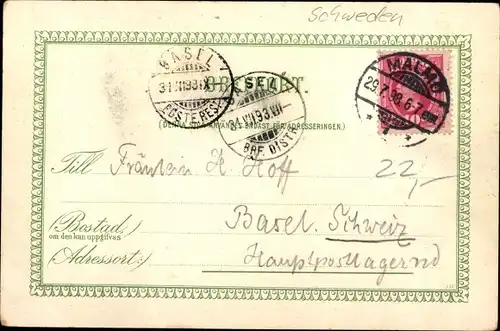 Schweden
BREFKORT.
BASEL
31.VII.98.IX
POSTE REST.
BASEL
31.VII.98.VI-
BRF. DIST.
MALMÖ
29.7.98.6-7
(DENNA SIDA ANVÄNDES ENDAST FÖR ADRESSERINGEN.)
Till Fräulein H. Hoff
22,-
(Bostad) Basel. Schweiz
om den kan uppgifvas
(Adressort:) Hauptpostlagernd